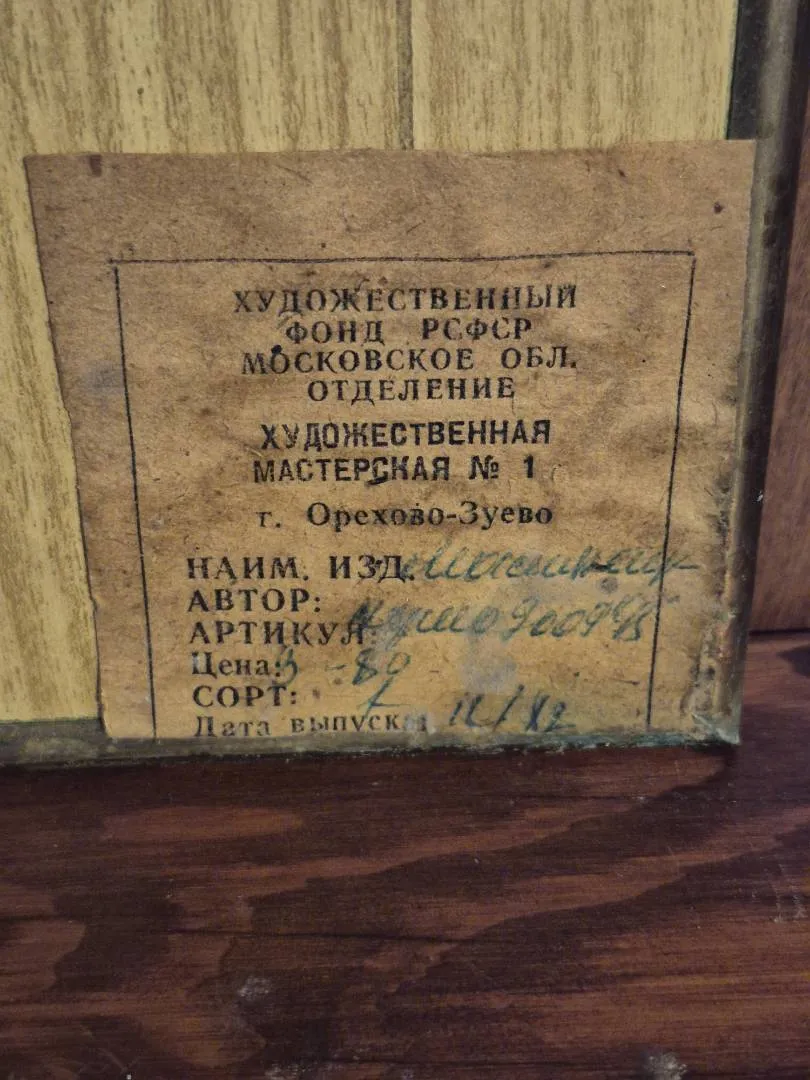 ХУДОЖЕСТВЕННЫЙ
ФОНД РСФСР
МОСКОВСКОЕ ОБЛ.
ОТДЕЛЕНИЕ
ХУДОЖЕСТВЕННАЯ
МАСТЕРСКАЯ № 1
г. Орехово-Зуево
НАИМ. ИЗД.
АВТОР:
АРТИКУЛ:
Цена: -80
СОРТ:
Дата выпуска: